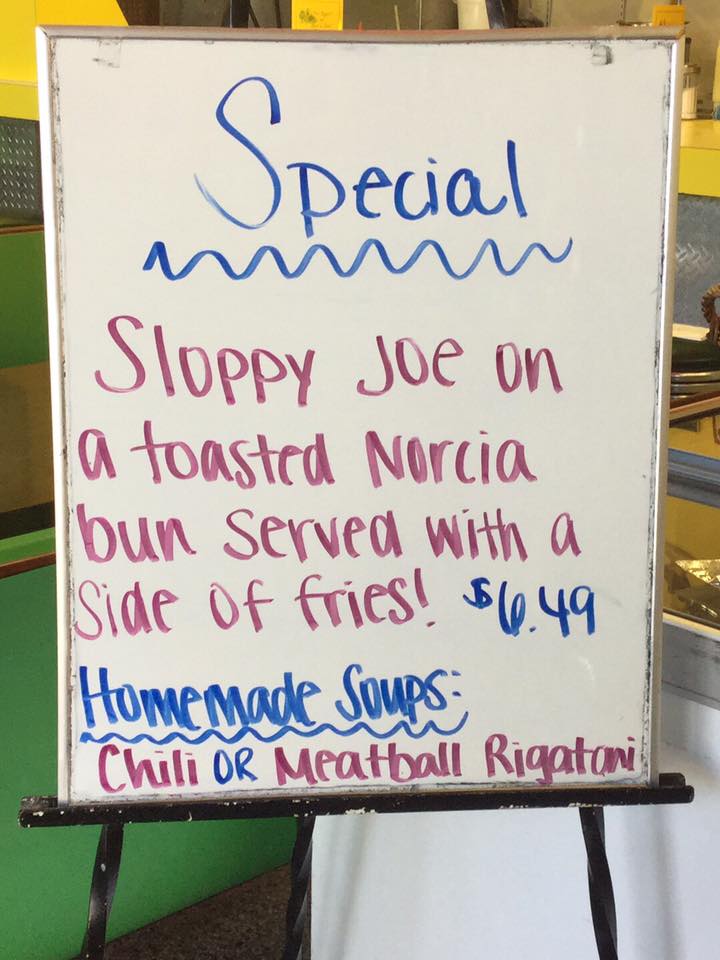 Special
Sloppy Joe on
a toasted Norcia
bun served with a
side of fries! $6.49
Homemade Soups:
Chili OR Meatball Rigatoni